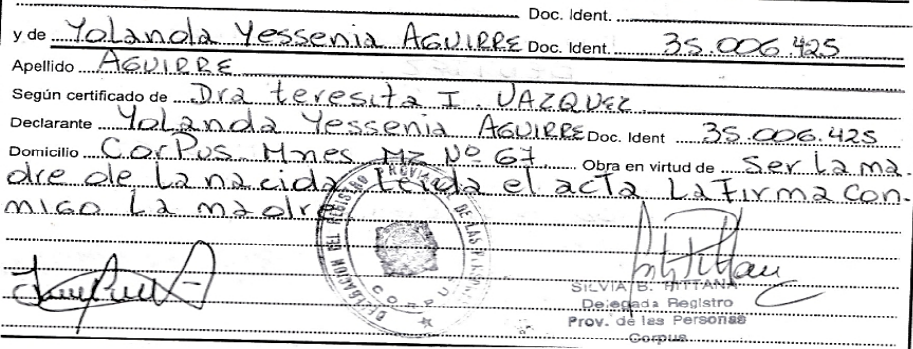 Doc. Ident.
y de Yolanda Yessenia AGUIRRE Doc. Ident. 35.006.425
Apellido AGUIRRE
Según certificado de Dra teresita I. VAZQUEZ.
Declarante Yolanda Yessenia AGUIRRE Doc. Ident 35.006.425
Domicilio CorPus Mnes Mz Nº 67 Obra en virtud de Ser La ma-
dre de La nacida Leida el acta La Firma Con-
migo La madre
DELEGACION DEL REGISTRO PROVINCIAL DE LAS PERSONAS
CORPUS
SILVIA B. PITTANA
Delegada Registro
Prov. de las Personas
Corpus